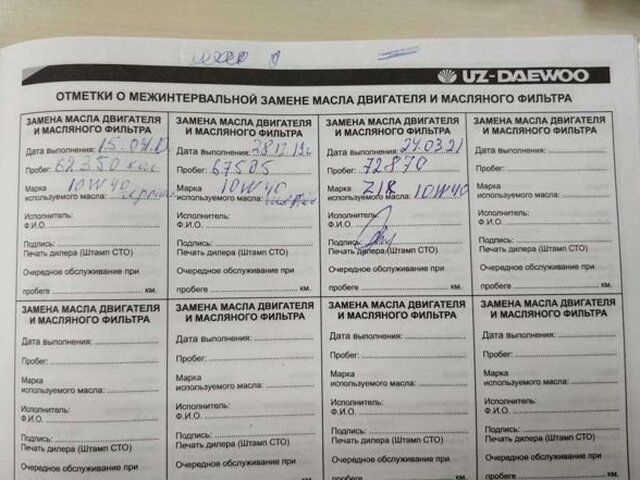 UZ-DAEWOO
ОТМЕТКИ О МЕЖИНТЕРВАЛЬНОЙ ЗАМЕНЕ МАСЛА ДВИГАТЕЛЯ И МАСЛЯНОГО ФИЛЬТРА
ЗАМЕНА МАСЛА ДВИГАТЕЛЯ
И МАСЛЯНОГО ФИЛЬТРА
Дата выполнения:
Пробег: 62350 км
Марка 10W40
используемого масла:
Исполнитель:
Ф.И.О.
Подпись:
Печать дилера (Штамп СТО)
Очередное обслуживание при
пробеге км.
ЗАМЕНА МАСЛА ДВИГАТЕЛЯ
И МАСЛЯНОГО ФИЛЬТРА
Дата выполнения: 28.12.19г
Пробег: 67505
Марка 10W40
используемого масла:
Исполнитель:
Ф.И.О.
Подпись:
Печать дилера (Штамп СТО)
Очередное обслуживание при
пробеге км.
ЗАМЕНА МАСЛА ДВИГАТЕЛЯ
И МАСЛЯНОГО ФИЛЬТРА
Дата выполнения: 27.03.21
Пробег: 72870
Марка ZIR 10W40
используемого масла:
Исполнитель:
Ф.И.О.
Подпись:
Печать дилера (Штамп СТО)
Очередное обслуживание при
пробеге км.
ЗАМЕНА МАСЛА ДВИГАТЕЛЯ
И МАСЛЯНОГО ФИЛЬТРА
Дата выполнения:
Пробег:
Марка
используемого масла:
Исполнитель:
Ф.И.О.
Подпись:
Печать дилера (Штамп СТО)
Очередное обслуживание при
пробеге
ЗАМЕНА МАСЛА ДВИГАТЕЛЯ
И МАСЛЯНОГО ФИЛЬТРА
Дата выполнения:
Пробег:
Марка
используемого масла:
Исполнитель:
Ф.И.О.
Подпись:
Печать дилера (Штамп СТО)
Очередное обслуживание при
ЗАМЕНА МАСЛА ДВИГАТЕЛЯ
И МАСЛЯНОГО ФИЛЬТРА
Дата выполнения:
Пробег:
Марка
используемого масла:
Исполнитель:
Ф.И.О.
Подпись:
Печать дилера (Штамп СТО)
Очередное обслуживание при
ЗАМЕНА МАСЛА ДВИГАТЕЛЯ
И МАСЛЯНОГО ФИЛЬТРА
Дата выполнения:
Пробег:
Марка
используемого масла:
Исполнитель:
Ф.И.О.
Подпись:
Печать дилера (Штамп СТО)
Очередное обслуживание при
ЗАМЕНА МАСЛА ДВИГАТЕЛЯ
И МАСЛЯНОГО ФИЛЬТРА
Дата выполнения:
Пробег:
Марка
используемого масла:
Исполнитель:
Ф.И.О.
Подпись:
Печать дилера (Штамп СТО)
Очередное обслуживание при